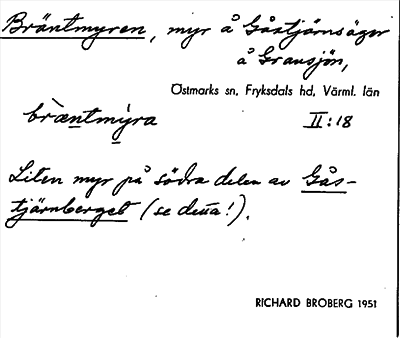 Bräntmyren, myr å Gåstjärnsäger
å Gransjön,
Östmarks sn, Fryksdals hd, Värml. län
bræ̀ntmýra II:18
Liten myr på södra delen av Gås-
tjärnberget (se detta!).
RICHARD BROBERG 1951